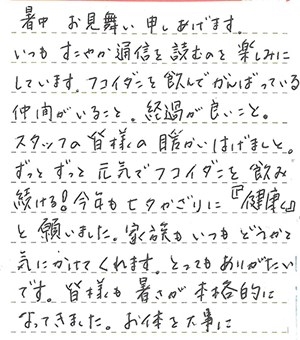 暑中 お見舞い 申しあげます。
いつも すこやか通信を読むのを 楽しみに
しています。フコイダンを飲んでがんばっている
仲間がいること。経過が良いこと。
スタッフの皆様の 暖かいはげましと。
ずっと ずっと 元気でフコイダンを 飲み
続ける！今年も七夕かざりに『健康』
と 願いました。家族もいつもどうかと
気にかけてくれます。とってもありがたい
です。皆様も 暑さが 本格的に
なってきました。お体を大事に